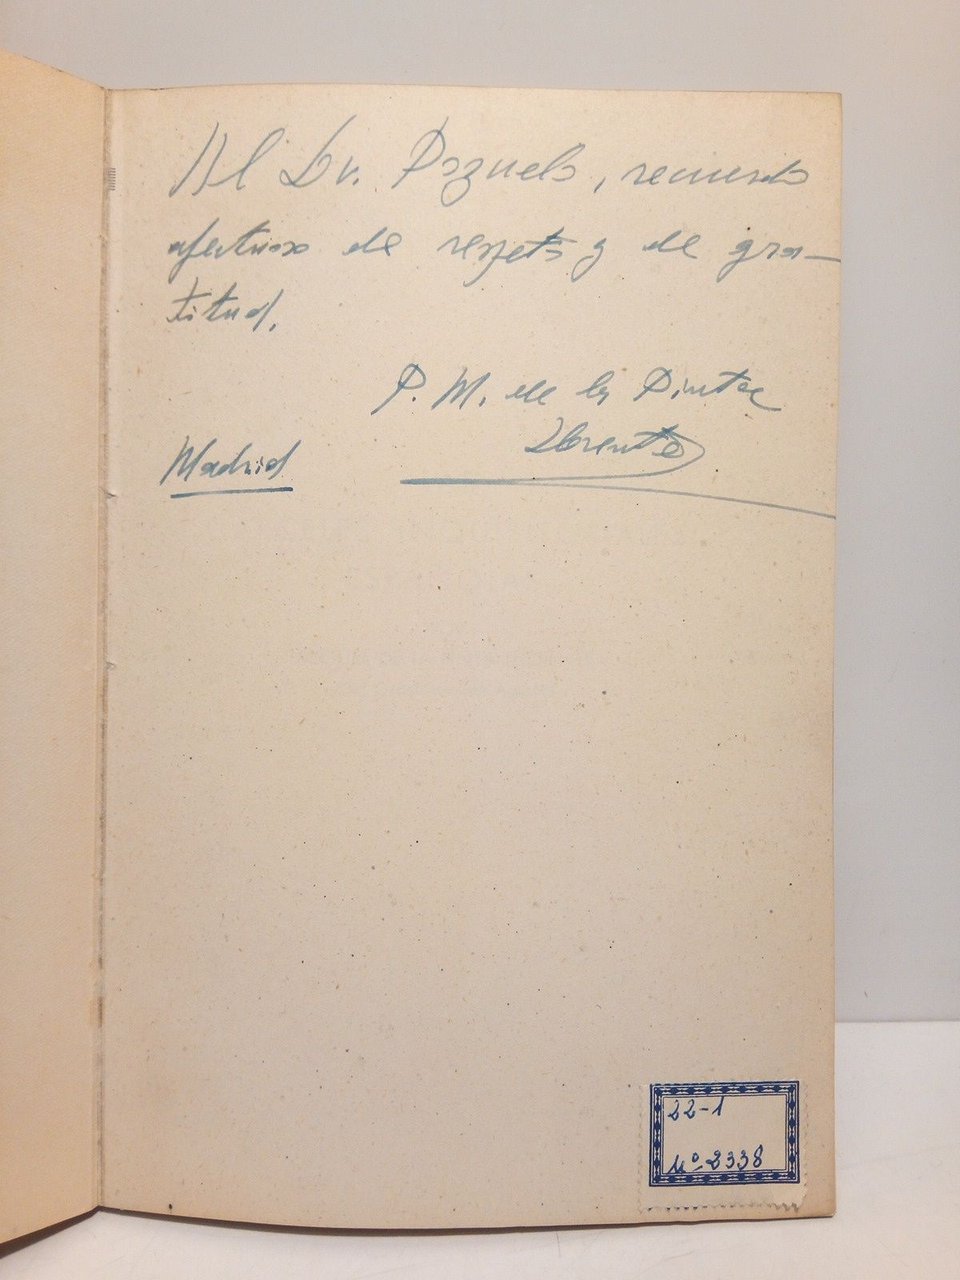 Al Dr. Pozuelo, recuerdo
afectuoso de respeto y de gra-
titud.
P. M. de la Pinta
Llorente
Madrid
22-1
Nº 2338